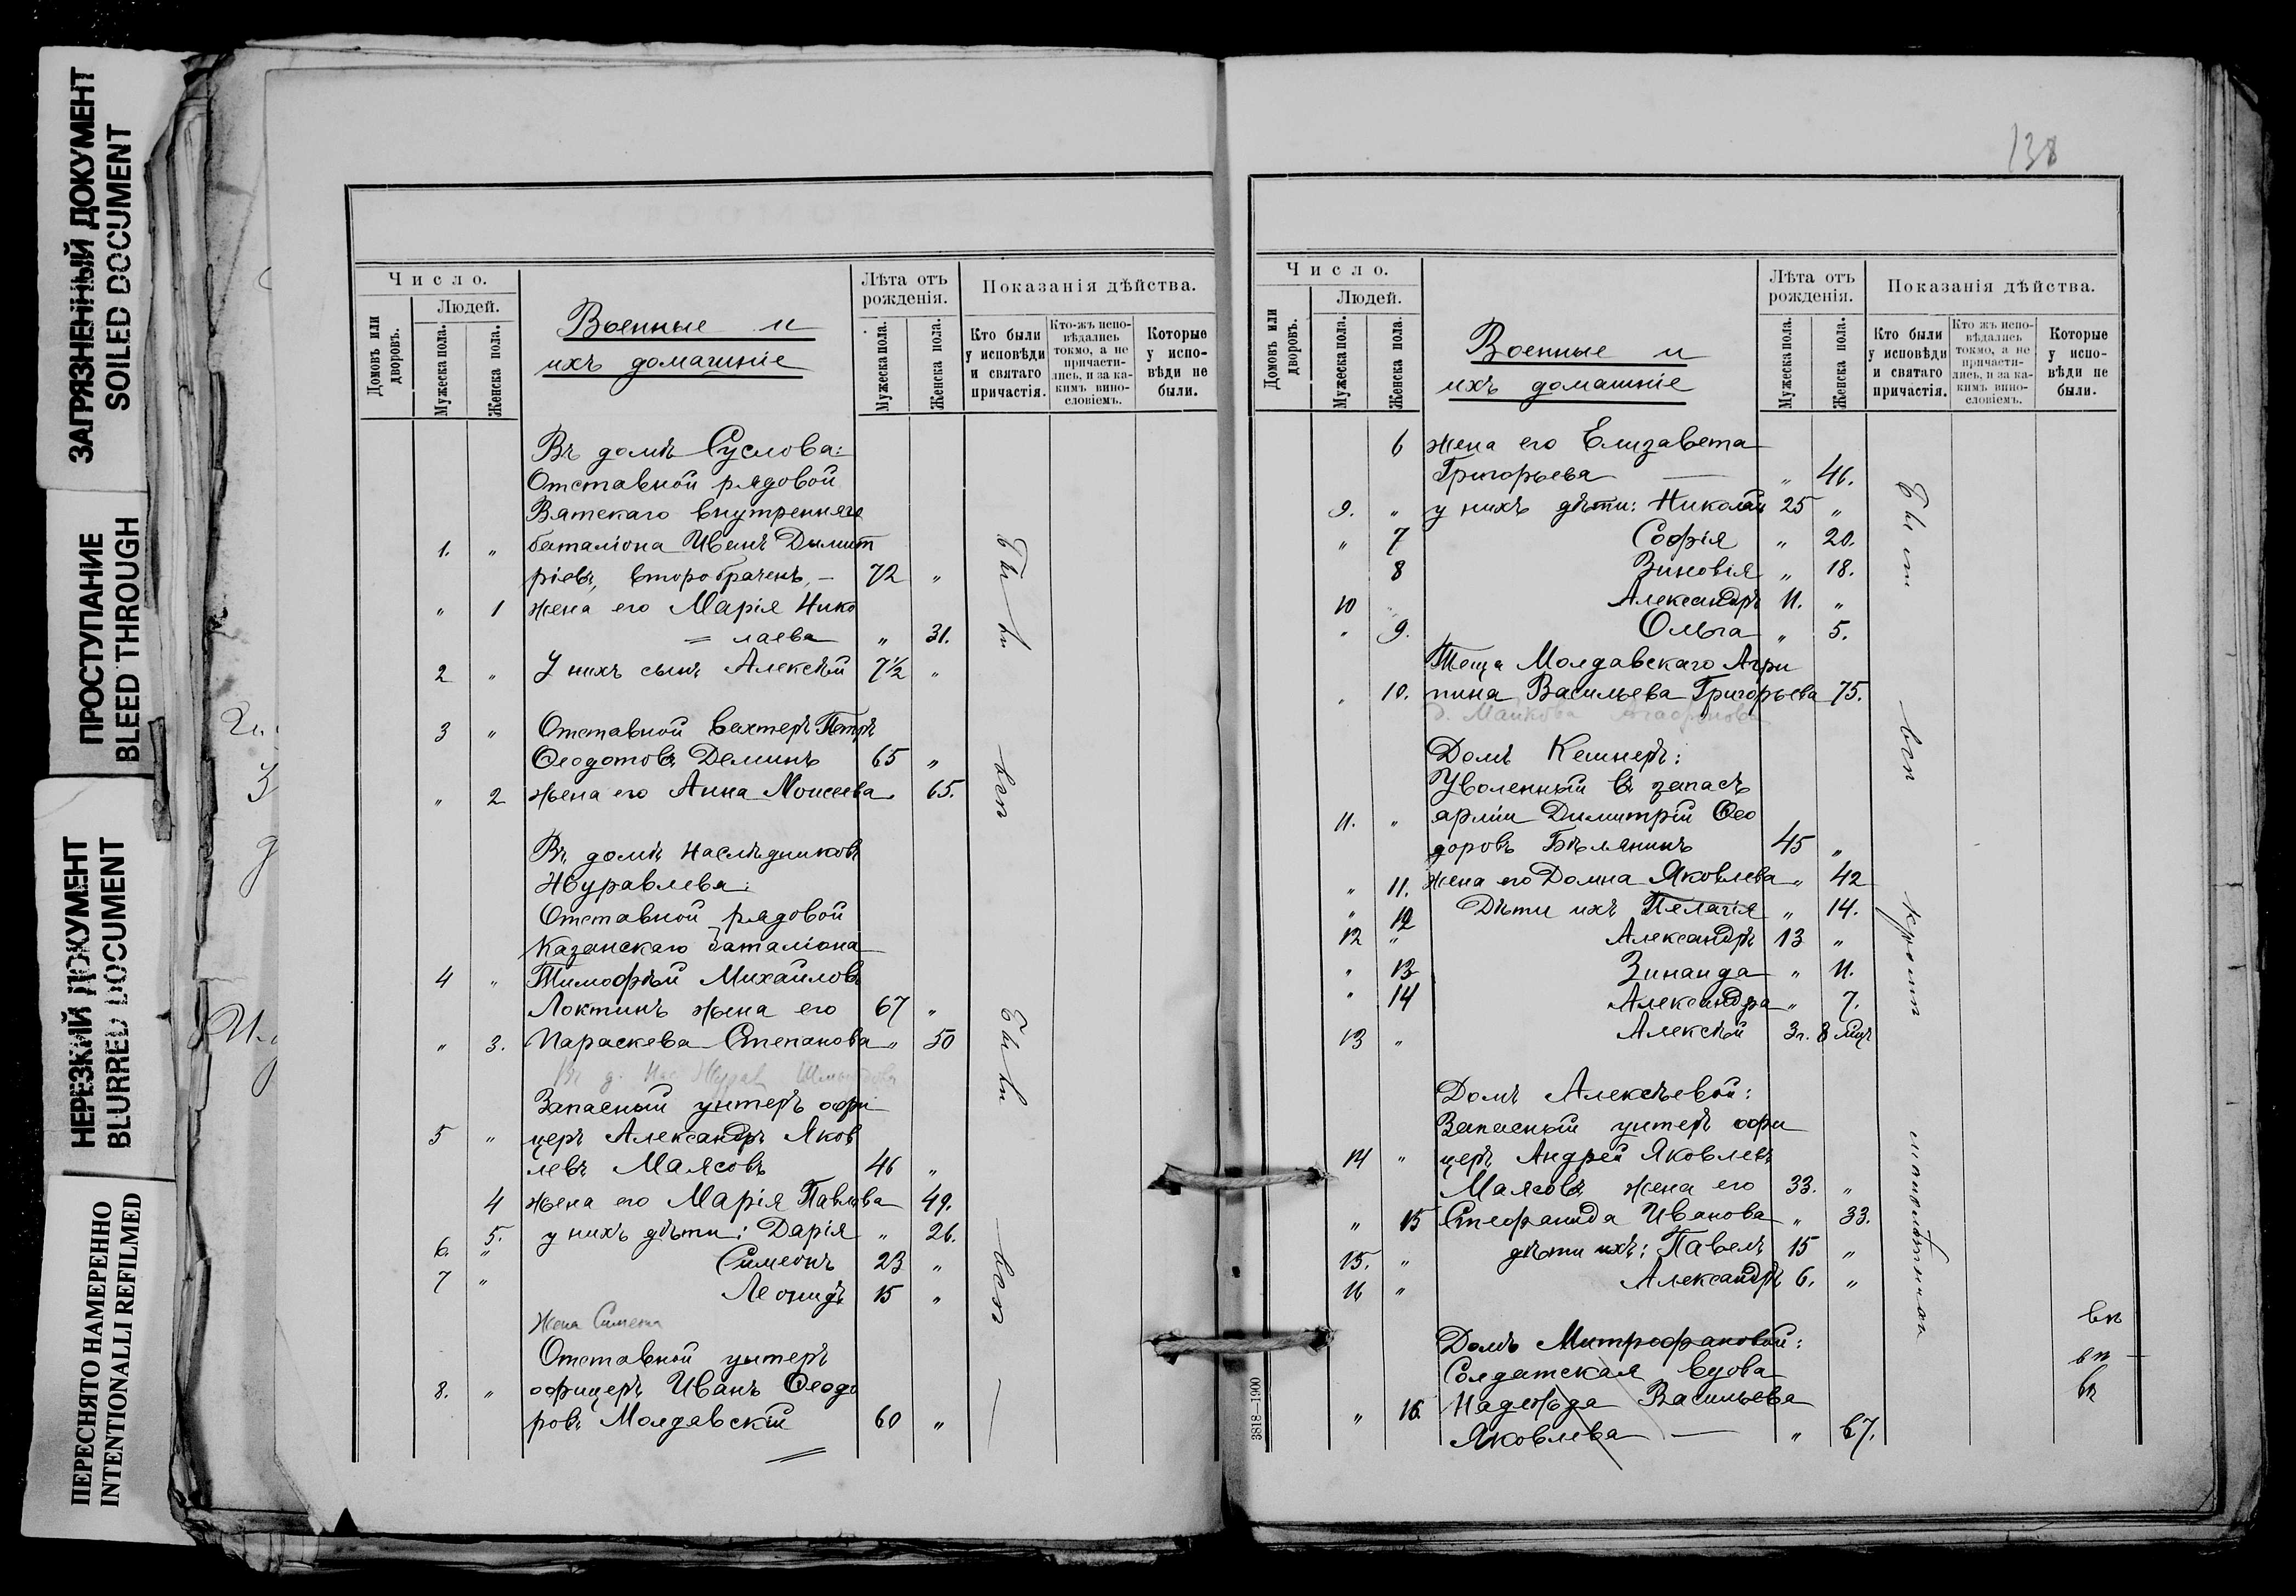 ЗАГРЯЗНЕННЫЙ ДОКУМЕНТ
SOILED DOCUMENT
ПРОСТУПАНИЕ
BLEED THROUGH
НЕРЕЗКИЙ ДОКУМЕНТ
BLURRED DOCUMENT
ПЕРЕСНЯТО НАМЕРЕННО
INTENTIONALLI REFILMED
Число.
Людей.
Домовъ или дворовъ.
Мужеска пола.
Женска пола.
Военные и
ихъ домашніе
Лѣта отъ рожденія.
Мужеска пола.
Женска пола.
Показанія дѣйства.
Кто были у исповѣди и святаго причастія.
Кто-жъ исповѣдались токмо, а не причастились, и за какимъ винословіемъ.
Которые у исповѣди не были.
Въ домѣ Суслова:
Отставной рядовой
Вятскаго внутренняго
1. " баталіона Иванъ Димит
ріевъ, второбраченъ, – 72 "
" 1 жена его Марія Нико
= лаева " 31.
2 " У нихъ сынъ Алексѣй 7½ "
3 " Отставной вахтеръ Петръ
Ѳеодотовъ Деминъ 65 "
" 2 жена его Анна Моисеева 65.
Въ домѣ наслѣдниковъ
Журавлева:
Отставной рядовой
Казанскаго баталіона
4 " Тимофѣй Михаиловъ
Локтинъ жена его 67 "
" 3. Параскева Степанова " 50
Запасный унтеръ офи
5 " церъ Александръ Яков
левъ Маясовъ 46 "
4 жена его Марія Павлова 49.
5. у нихъ дѣти: Дарія " 26.
6. " Симеонъ 23 "
7 " Леонидъ 15 "
Жена Симеона
Отставной унтеръ
8. " офицеръ Иванъ Ѳеодо
ровъ Молдавскій 60 "
Были
всѣ
Были
всѣ
138
Число.
Людей.
Домовъ или дворовъ.
Мужеска пола.
Женска пола.
Военные и
ихъ домашніе
Лѣта отъ рожденія.
Мужеска пола.
Женска пола.
Показанія дѣйства.
Кто были у исповѣди и святаго причастія.
Кто жъ исповѣдались токмо, а не причастились, и за какимъ винословіемъ.
Которые у исповѣди не были.
6 жена его Елизавета
Григорьева — " 46.
9. " у нихъ дѣти: Николай 25 "
" 7 Софія " 20.
8 Зиновія " 18.
10 " Александръ 11. "
" 9. Ольга " 5.
Теща Молдавскаго Агри
" 10. пина Васильева Григорьева 75.
Домъ Кешнеръ:
Уволенный въ запасъ
11. " арміи Димитрій Ѳео
доровъ Бѣлянинъ 45 "
" 11. жена его Домна Яковлева " 42
" 12 Дѣти ихъ Пелагія " 14.
12 " Александръ 13 "
" 13 Зинаида " 11.
" 14 Александра " 7.
13 " Алексѣй 3г. 8 мцъ
Домъ Алексѣевой:
Запасный унтеръ офи
14 " церъ Андрей Яковлевъ
Маясовъ жена его 33. "
" 15 Стефанида Иванова " 33.
15. " дѣти ихъ: Павелъ 15 "
16 " Александръ 6. "
Домъ Митрофановой:
Солдатская вдова
" 16 Надежда Васильева
Яковлева — " 67.
Были
всѣ
кромѣ
малолѣтнихъ
3818—1900